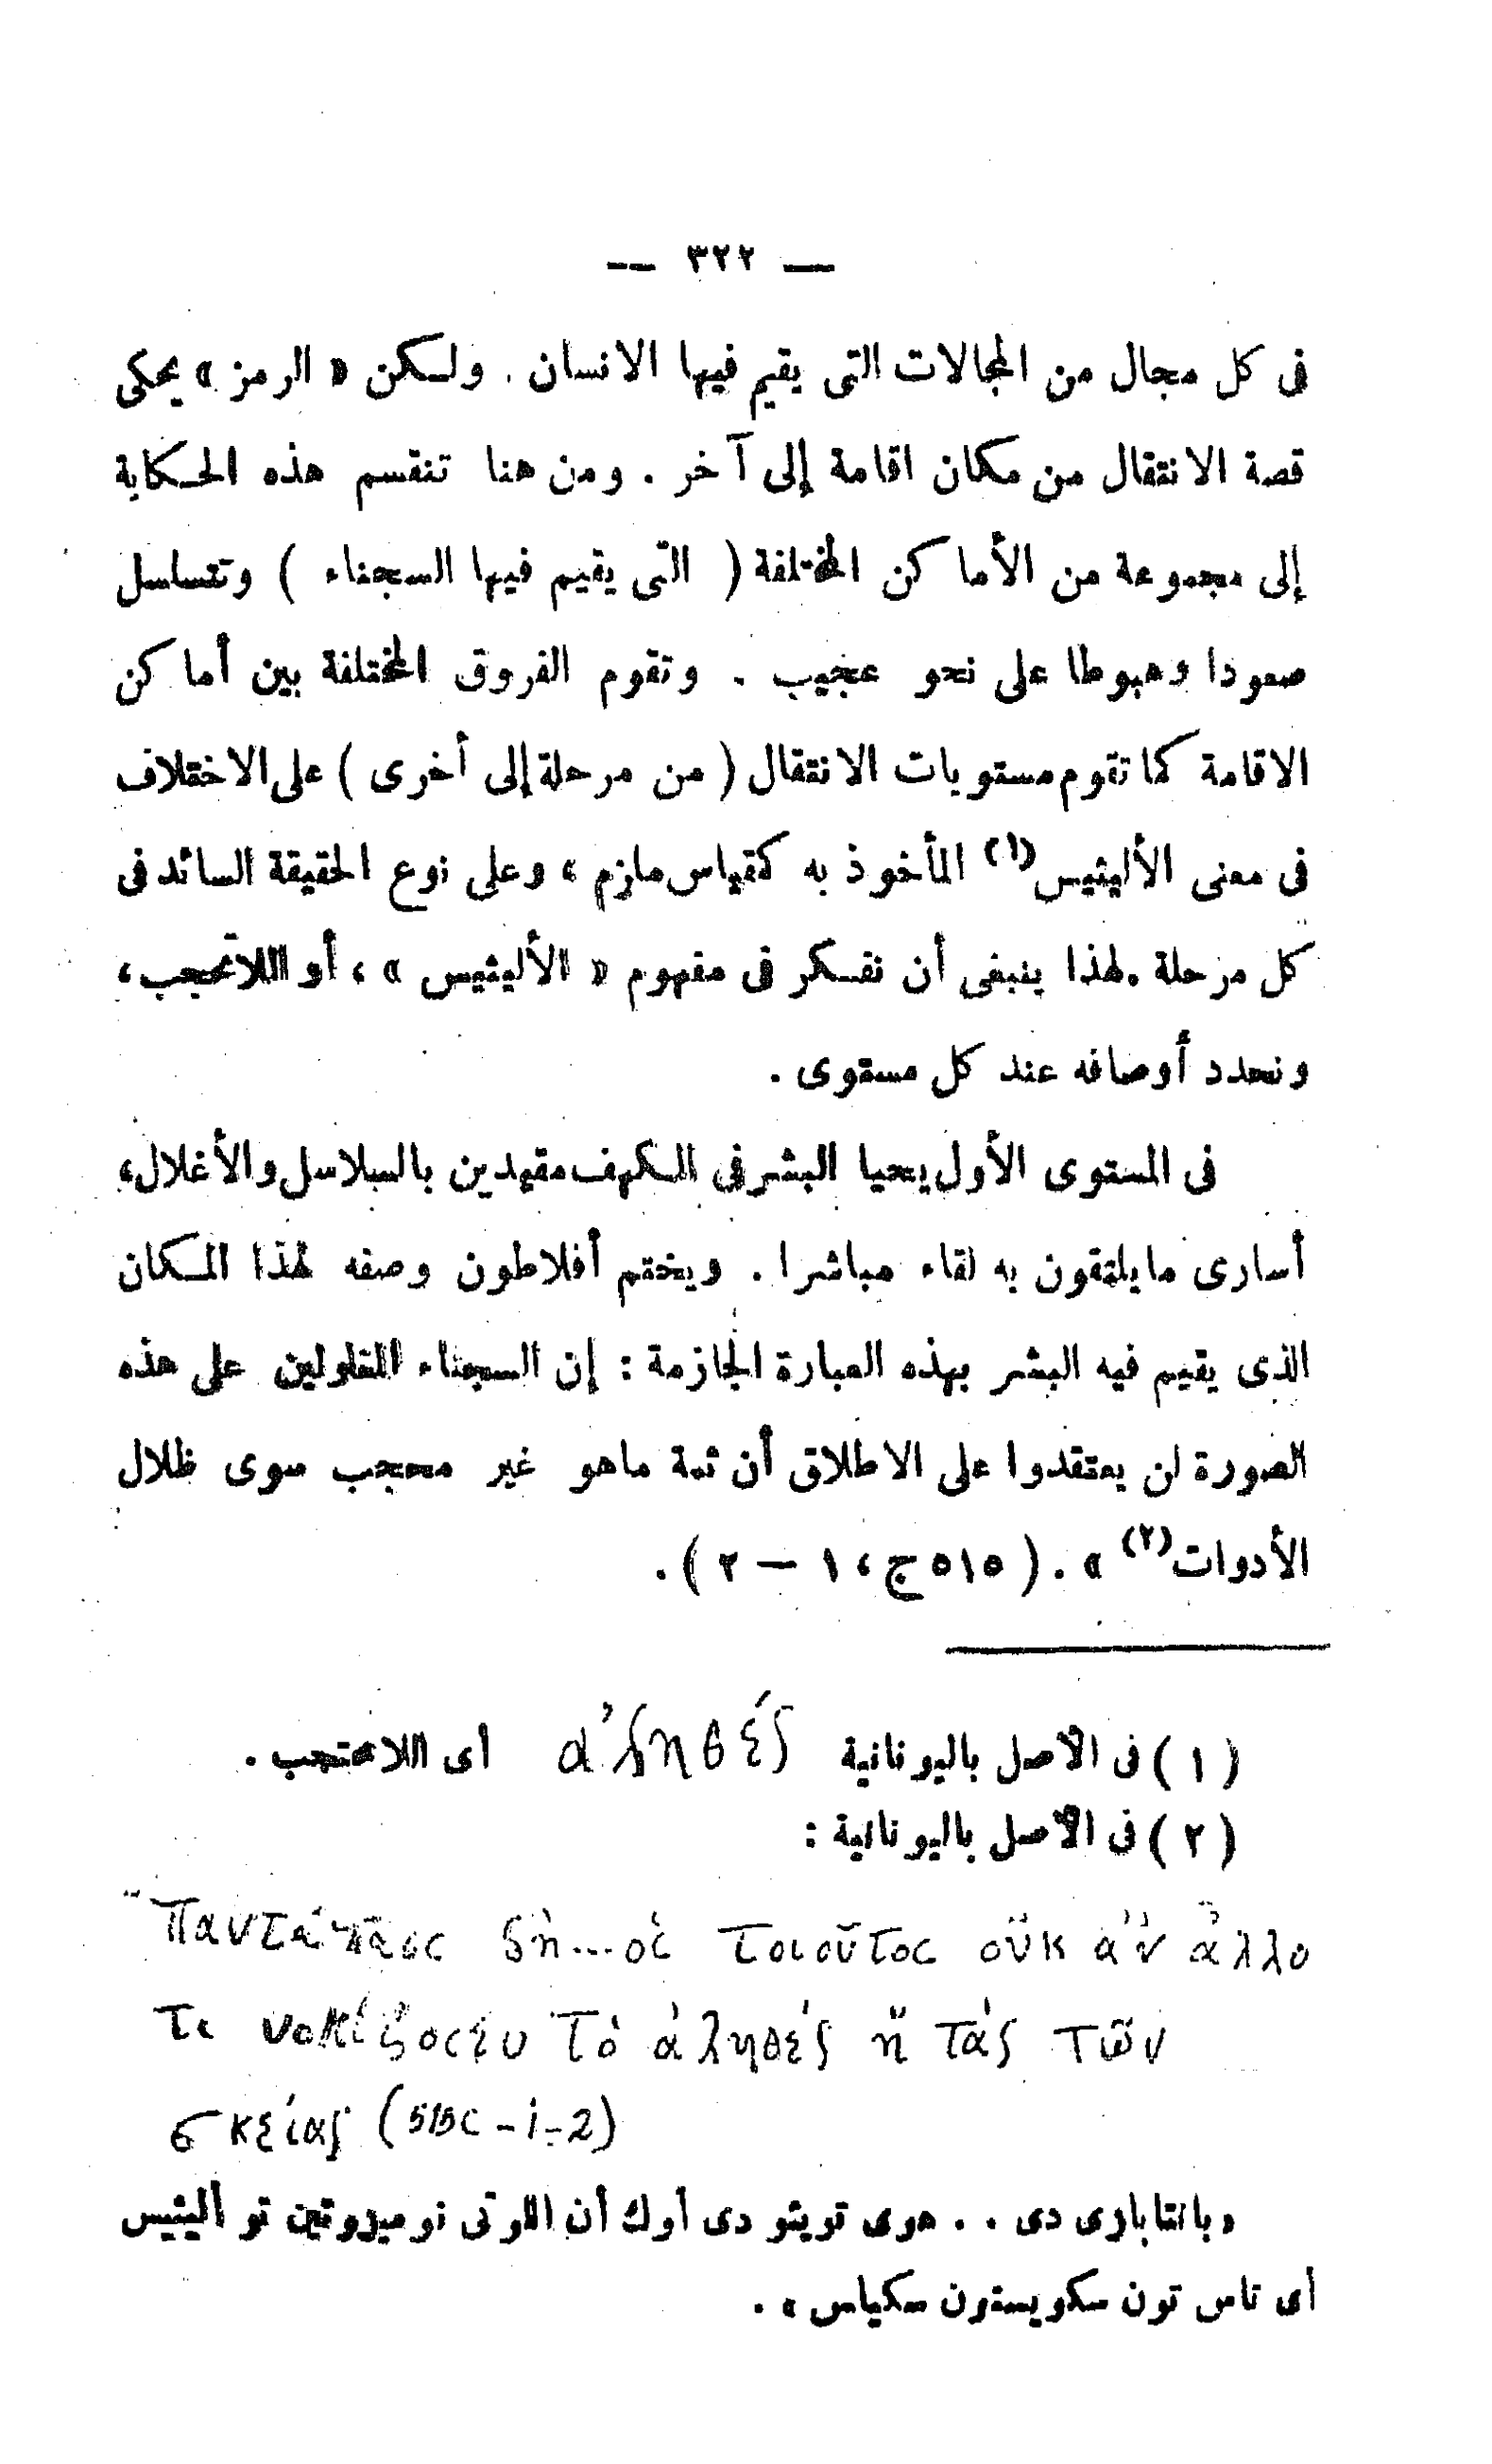 — ٣٢٢ —
فى كل مجال من المجالات التى يقيم فيها الانسان . ولكن « الرمز » يحكى
قصة الانتقال من مكان اقامة إلى آخر . ومن هنا تنقسم هذه الحكاية
إلى مجموعة من الأماكن المختلفة ( التى يقيم فيها السجناء ) وتتسلسل
صعودا وهبوطا على نحو عجيب . وتقوم الفروق المختلفة بين أماكن
الاقامة كما تقوم مستويات الانتقال ( من مرحلة إلى أخرى ) على الاختلاف
فى معنى الأليثيس (١) المأخوذ به كمقياس ملزم ، وعلى نوع الحقيقة السائد فى
كل مرحلة . لهذا ينبغى أن نفكر فى مفهوم « الأليثيس » ، أو اللاتحجب ،
ونحدد أوصافه عند كل مستوى .
فى المستوى الأول يحيا البشر فى الكهف مقيدين بالسلاسل والأغلال ،
أسارى ما يلتقون به لقاء مباشرا . ويختم أفلاطون وصفه لهذا المكان
الذى يقيم فيه البشر بهذه العبارة الجازمة : إن السجناء المغلولين على هذه
الصورة لن يعتقدوا على الاطلاق أن ثمة ماهو غير محجب سوى ظلال
الأدوات (٢) » . ( ٥١٥ ج ، ١ — ٢ ) .
( ١ ) فى الأصل باليونانية ἀληθές أى اللامحتجب .
( ٢ ) فى الأصل باليونانية :
"Παντάπασς δὴ... οἱ τοιοῦτος οὔκ ἀν ἀλλο
τι νομίζοιευ τὸ ἀληθές ἤ τάς τῶν
σκείας (515c – 1-2)
«بانتابازى دى . . هوى تويتو دى أوك أن اللوتى نوميزوتين تو أليثيس
أى تاس تون سكويستون سكياس » .